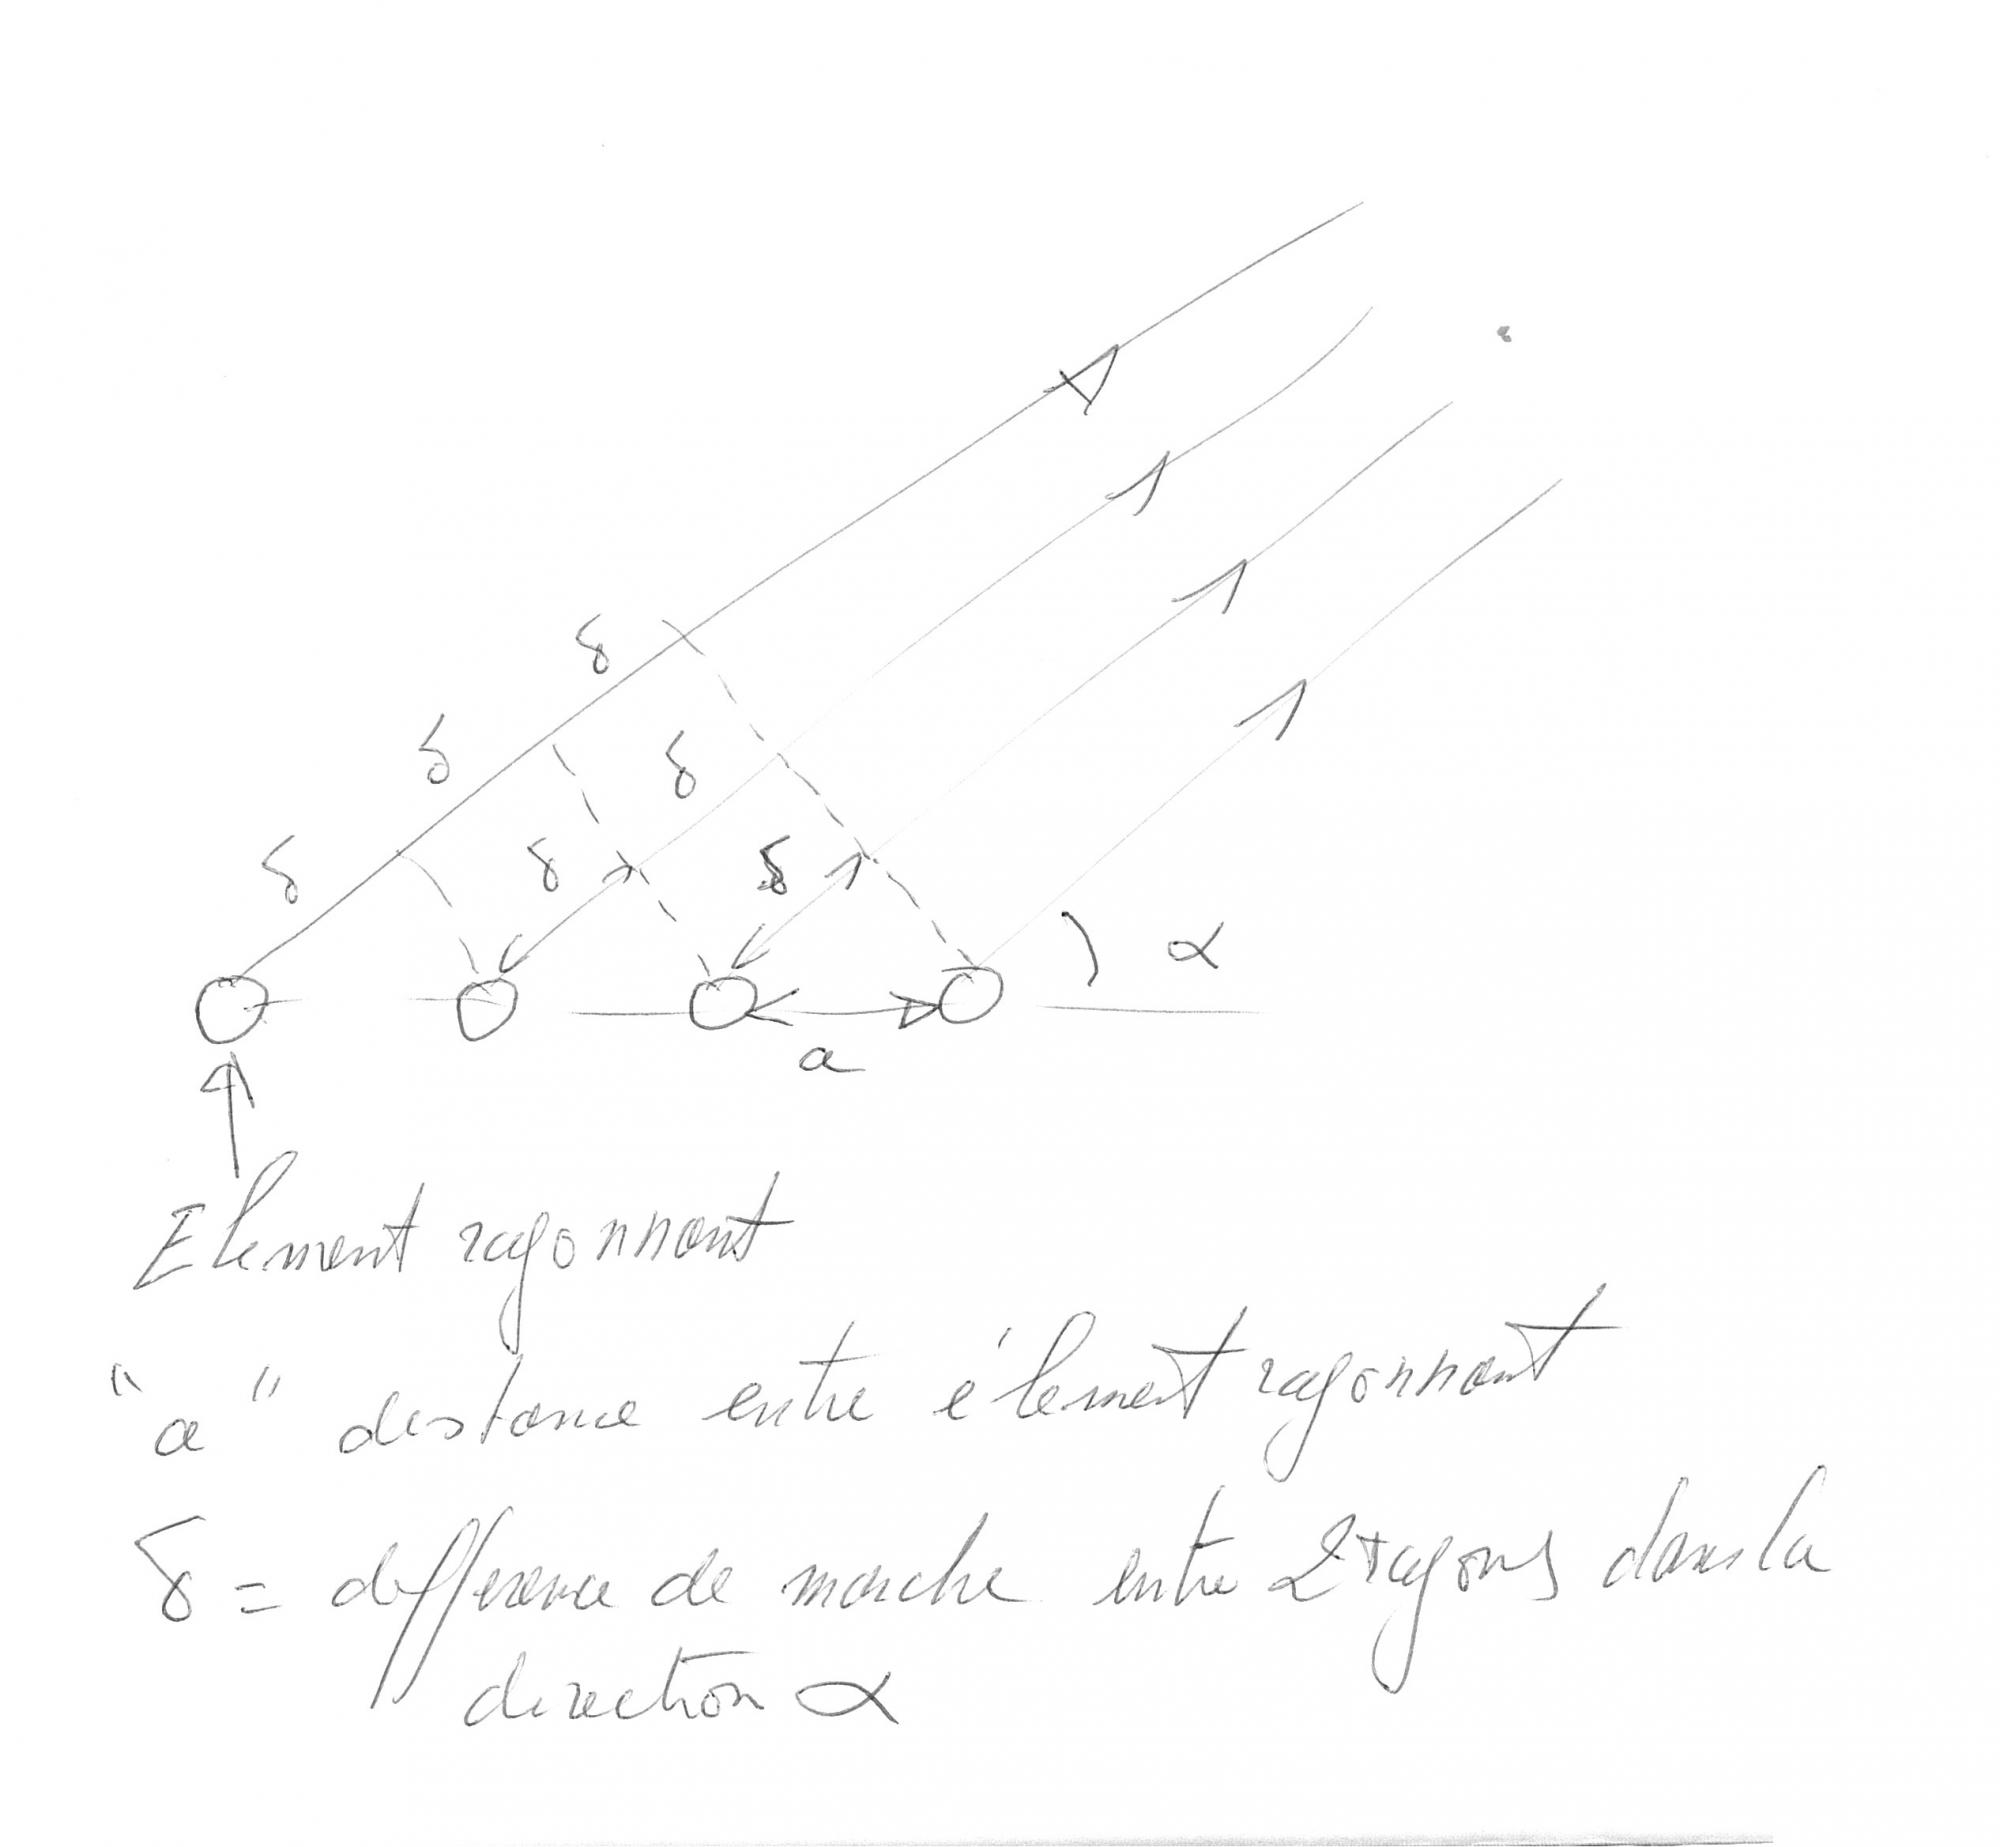 δ
δ
δ
δ
δ
δ
α
a
Element rayonnant
"a" distance entre élement rayonnant
δ = difference de marche entre 2 rayons dans la
direction α